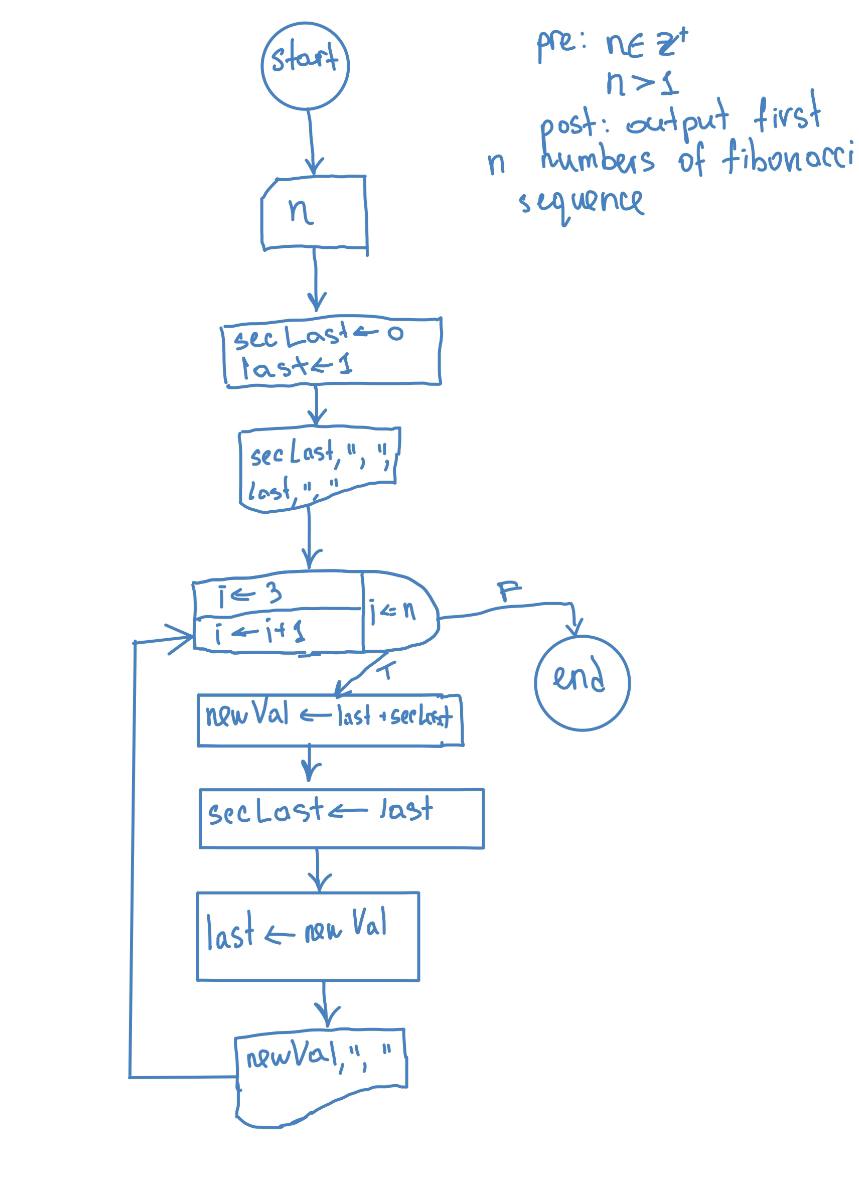 start
pre: n∈ Z⁺
n > 1
post: output first
n numbers of fibonacci
sequence
n
secLast ← 0
last ← 1
secLast, ", ",
last, ", "
i ← 3
i ← i+1
i <= n
F
T
end
newVal ← last + secLast
secLast ← last
last ← newVal
newVal, ", "